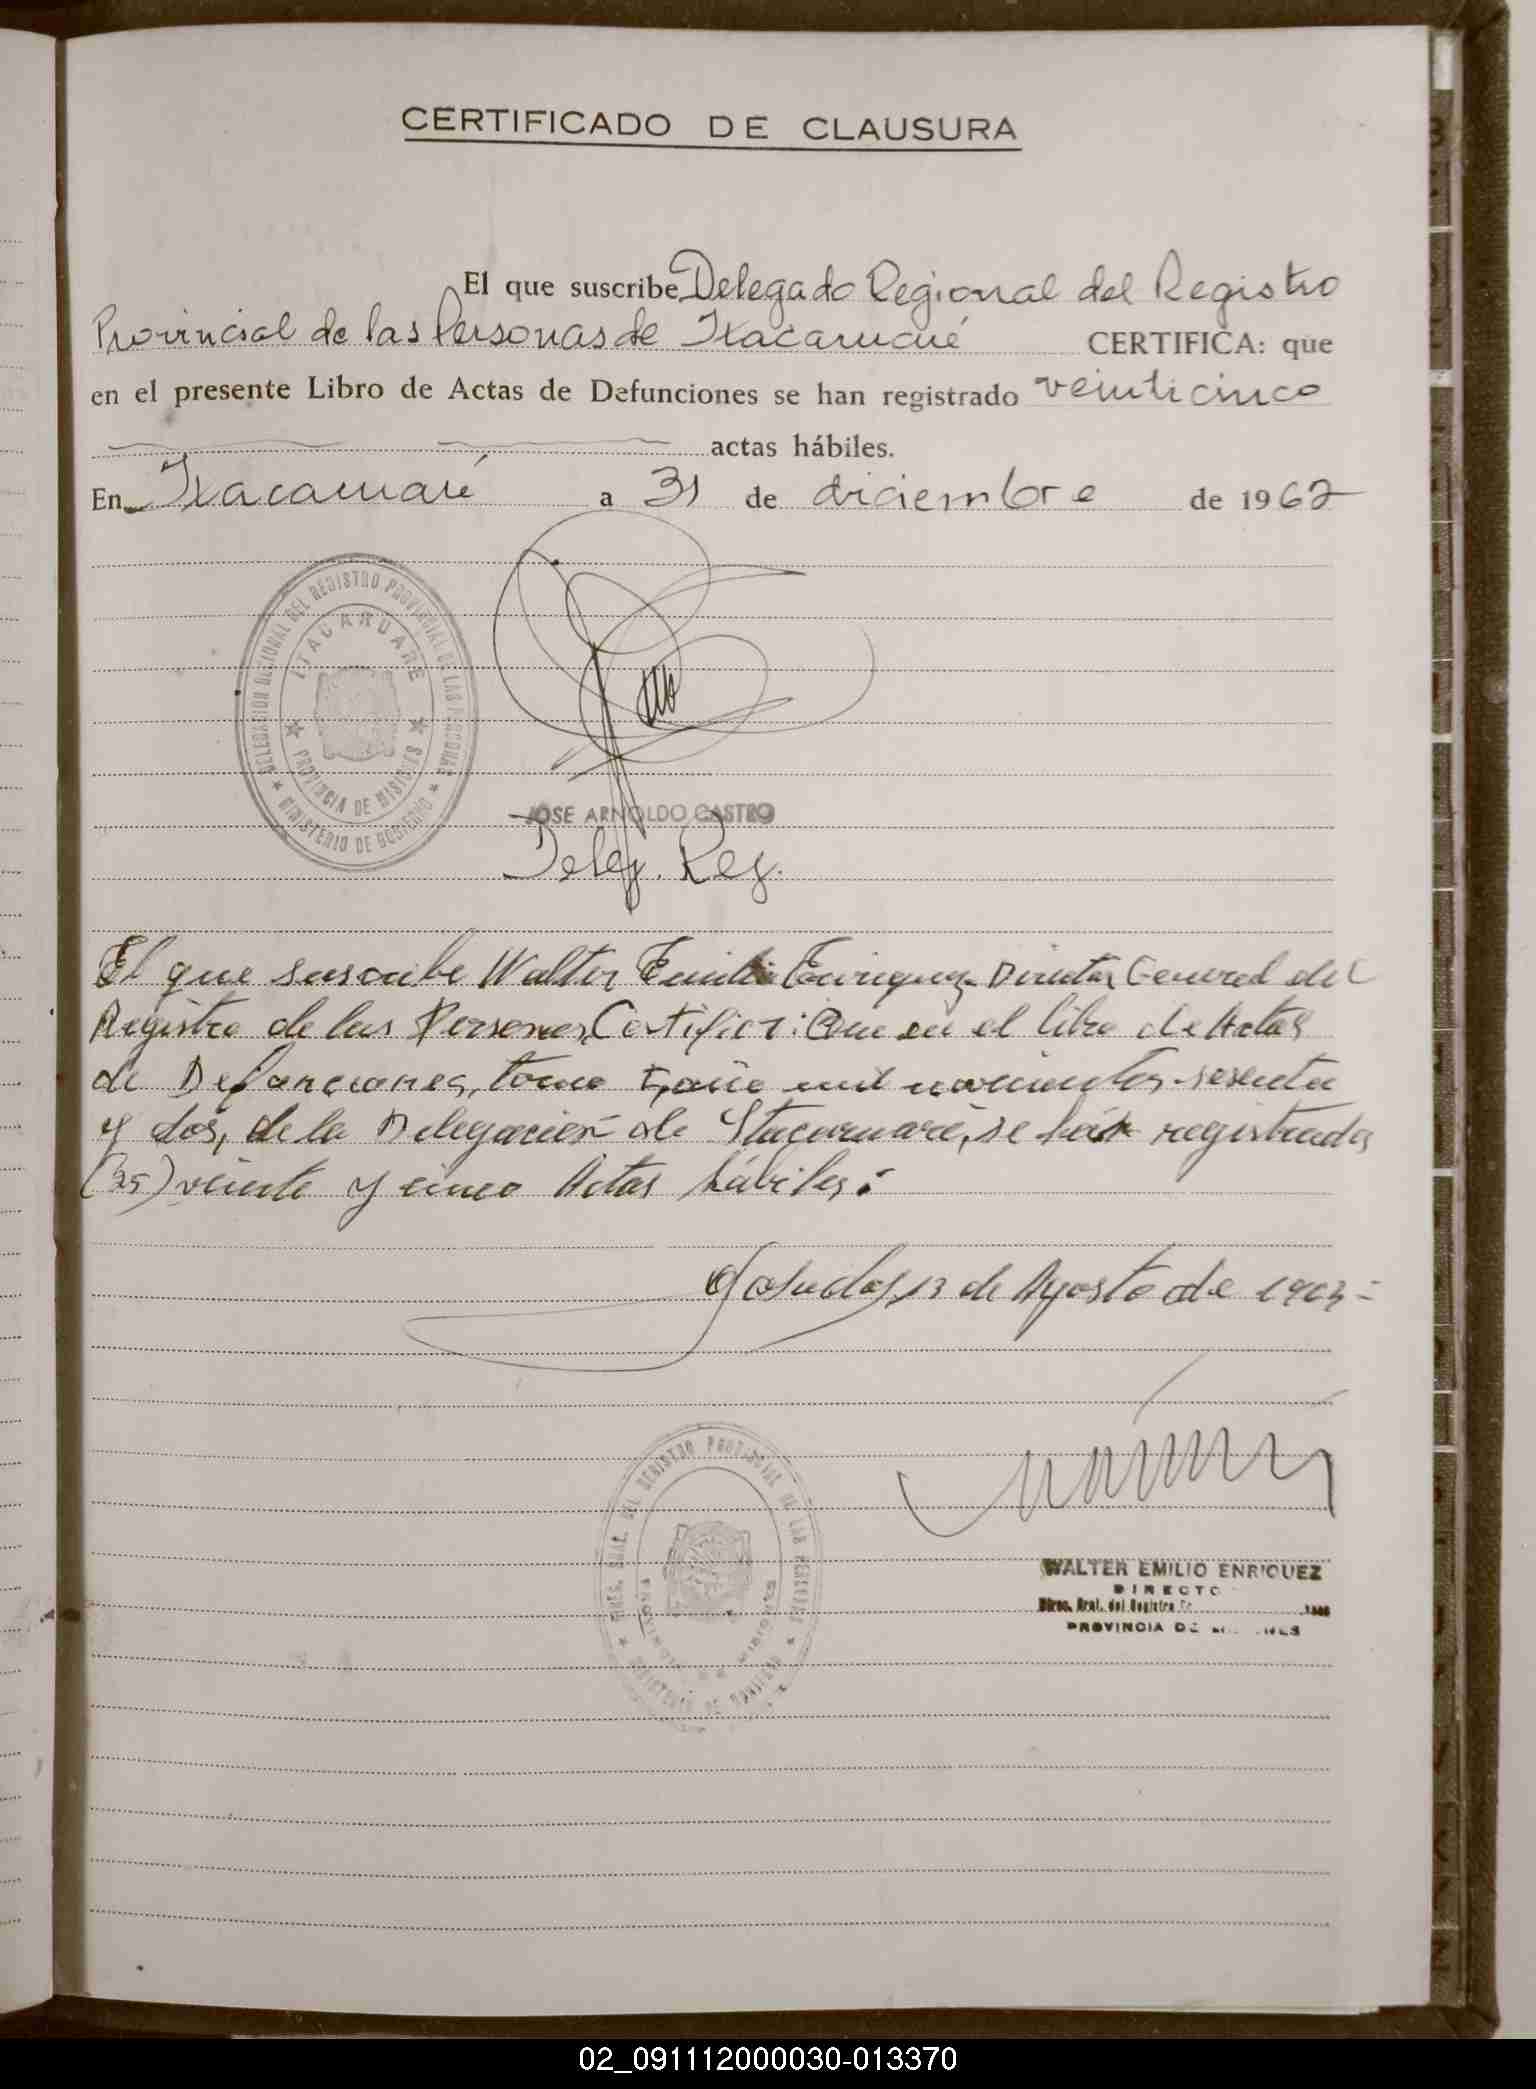 CERTIFICADO DE CLAUSURA
El que suscribe Delegado Regional del Registro
Provincial de las Personas de Itacaruaré CERTIFICA: que
en el presente Libro de Actas de Defunciones se han registrado veinticinco
actas hábiles.
En Itacaruaré a 31 de diciembre de 1962
DELEGACION REGIONAL DEL REGISTRO PROVINCIAL DE LAS PERSONAS
ITACARUARE
PROVINCIA DE MISIONES
MINISTERIO DE GOBIERNO
JOSE ARNOLDO CASTRO
Deleg. Reg.
El que suscribe Walter Emilio Enriquez Director General del
Registro de las Personas, Certifica: Que en el libro de Actas
de Defunciones, tomo año mil novecientos sesenta
y dos, de la Delegación de Itacaruaré, se han registrado
(25) veinte y cinco Actas hábiles.
Posadas, 13 de Agosto de 1963=
GRAL. DEL REGISTRO PROVINCIAL DE LAS PERSONAS
MINISTERIO DE GOBIERNO
WALTER EMILIO ENRIQUEZ
DIRECTO
Direc. Gral. del Registro
PROVINCIA DE
02_091112000030-013370